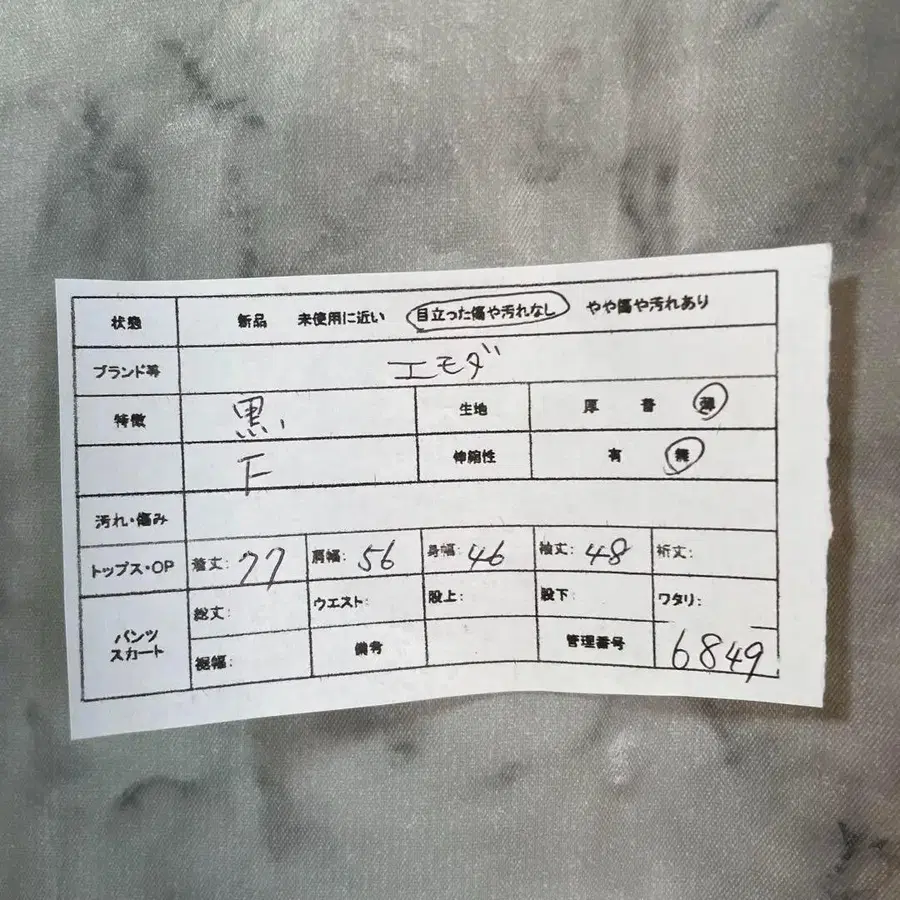 状態 新品 未使用に近い 目立った傷や汚れなし やや傷や汚れあり
ブランド等 エモダ
特徴 黒、 生地 厚 普 薄
F 伸縮性 有 無
汚れ・傷み
トップス・OP 着丈: 77 肩幅: 56 身幅: 46 袖丈: 48 裄丈:
パンツ スカート 総丈: ウエスト: 股上: 股下: ワタリ:
裾幅: 備考 管理番号 6849